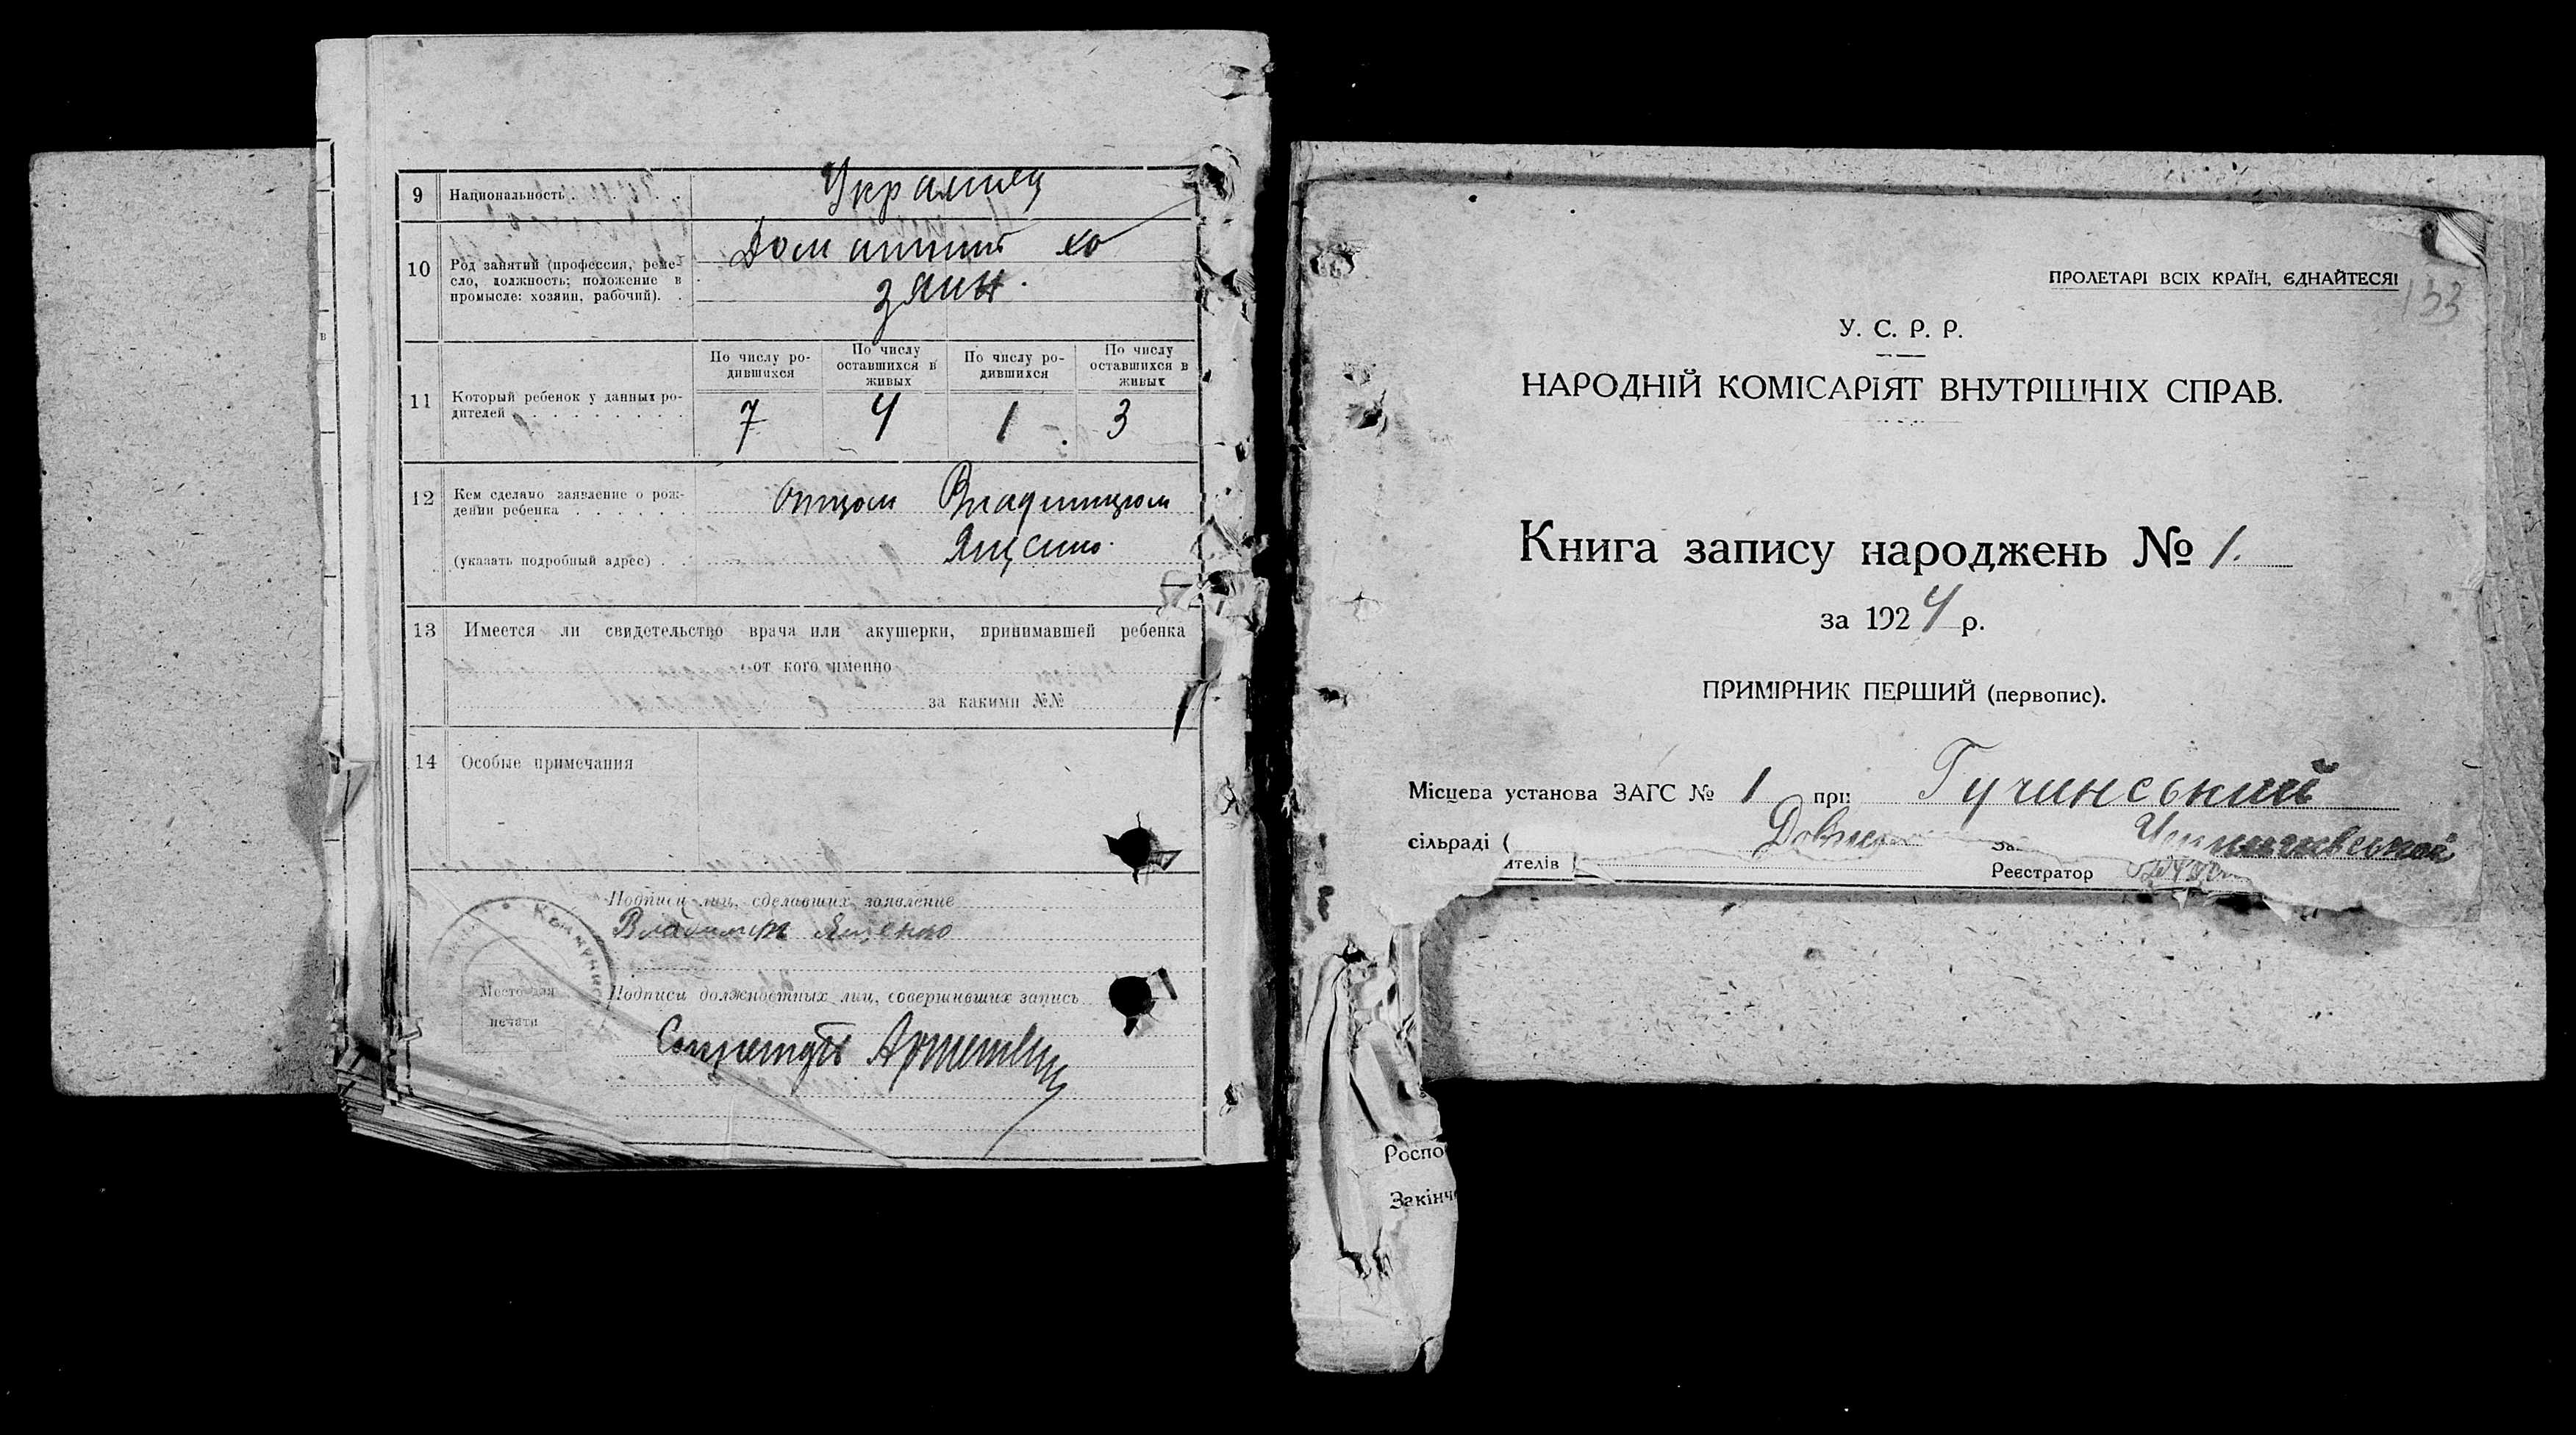 9 Национальность . . . . . . Украинец
10 Род занятий (профессия, реме-
сло, должность; положение в
промысле: хозяин, рабочий). .
Домашний хо
зяин.
11 Который ребенок у данных ро-
дителей . . . . . . . .
По числу ро-
дившихся
По числу
оставшихся в
живых
По числу ро-
дившихся
По числу
оставшихся в
живых
7 4 1 3
12 Кем сделано заявление о рож-
дении ребенка . . . . . .
(указать подробный адрес) . .
отцом Владимиром
13 Имеется ли свидетельство врача или акушерки, принимавшей ребенка
от кого именно
за какими №№
14 Особые примечания
Подписи лиц, сделавших заявление
Владимир Ященко
Место для
печати
Подписи должностных лиц, совершивших запись
ПРОЛЕТАРІ ВСІХ КРАЇН, ЄДНАЙТЕСЯ!
133
У. С. Р. Р.
НАРОДНІЙ КОМІСАРІЯТ ВНУТРІШНІХ СПРАВ.
Книга запису народжень № 1.
за 1924 р.
ПРИМІРНИК ПЕРШИЙ (первопис).
Місцева установа ЗАГС № 1 при Гучинський
сільраді (
ителів
Реєстратор
Роспо
Закінч